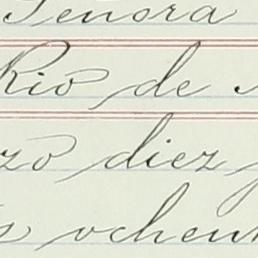 Señora
Rio de
zo diez
ochen